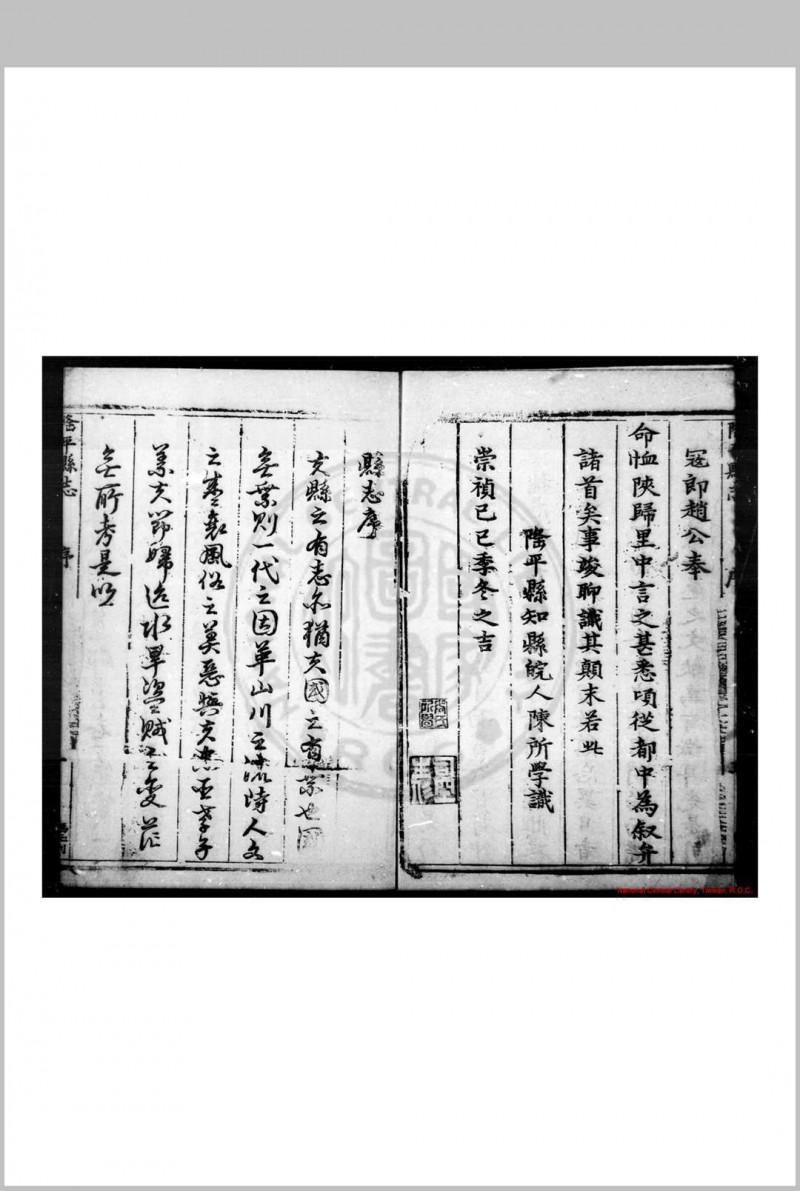 寇郎趙公奉
命恤陝歸里中言之甚悉頃從都中為叙弁
諸首矣事竣聊識其顛末若此
隆平縣知縣皖人陳所學識
崇禎己巳季冬之吉
縣志序
夫縣之有志亦猶夫國之有業也國
無業則一代之因革山川之流峙人文
之盛衰風俗之美惡與夫忠臣孝子
義夫節婦迨水旱盜賊之變茫
無所考是以
隆平縣志
序
National Central Library, Taiwan, R.O.C.